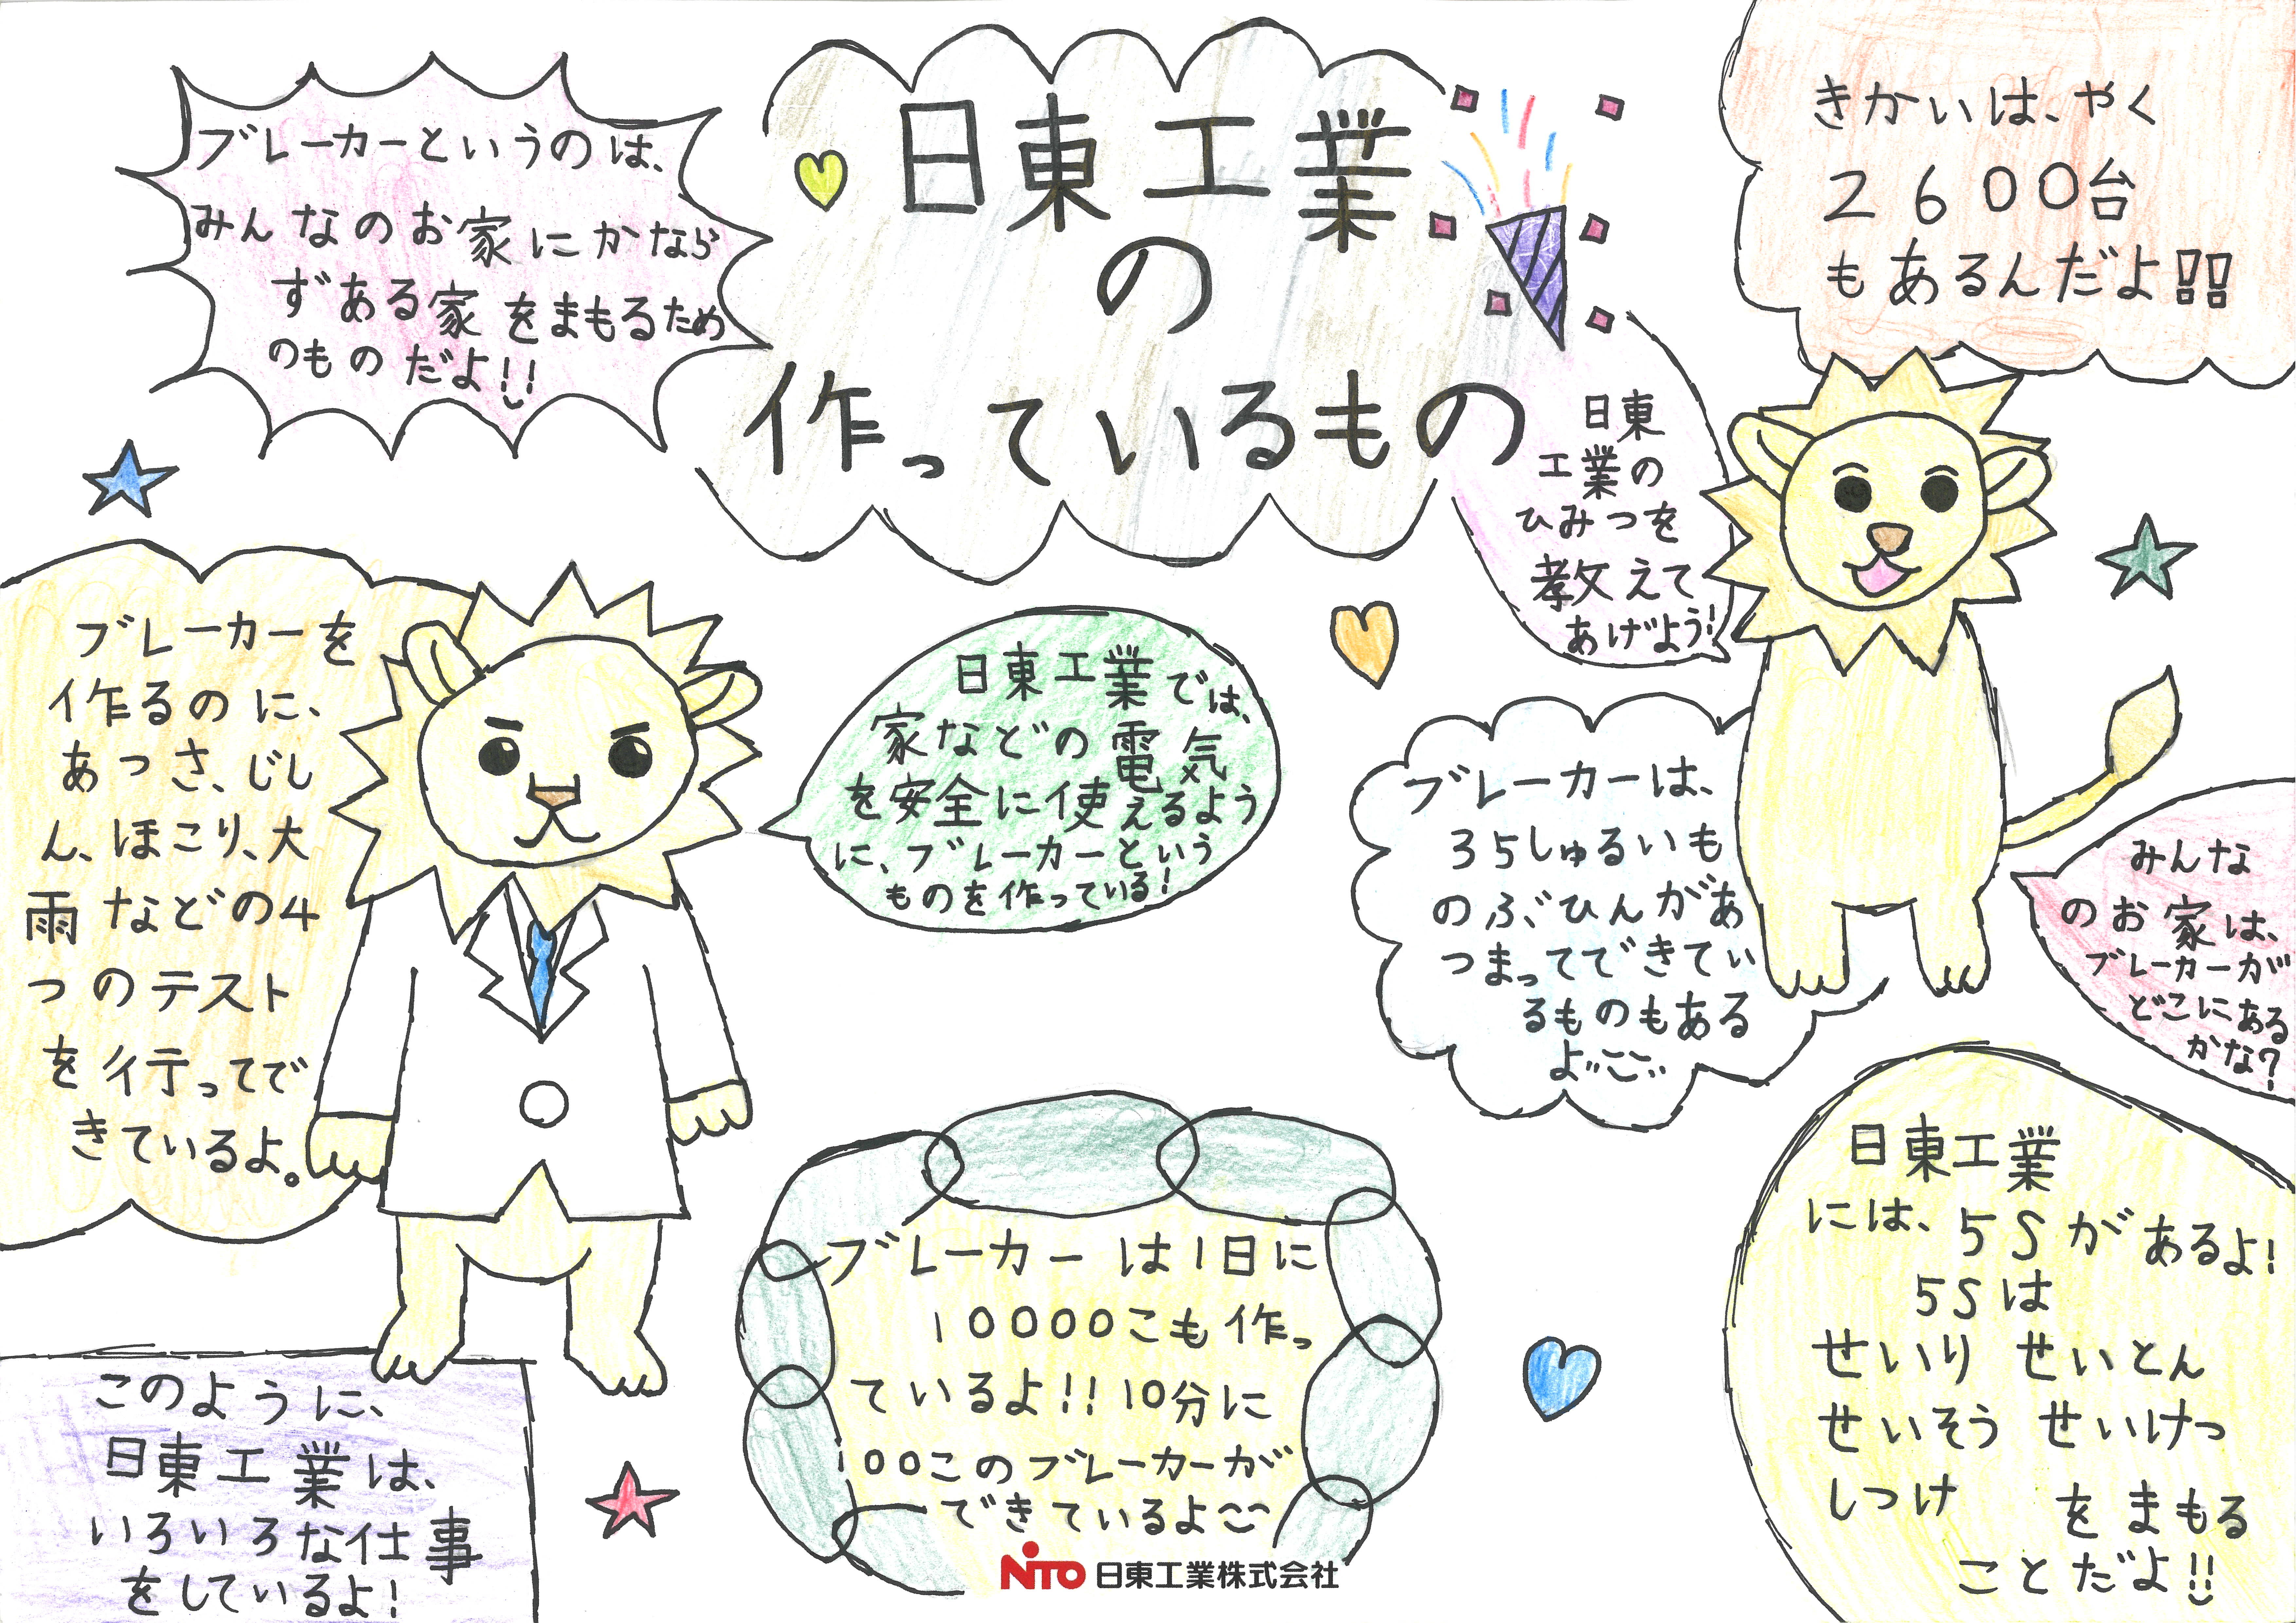 日東工業
の
作っているもの
ブレーカーというのは、
みんなのお家にかなら
ずある家をまもるため
のものだよ!!
きかいは、やく
2600台
もあるんだよ!!
日東
工業の
ひみつを
教えて
あげよう!
ブレーカーを
作るのに、
あつさ、じし
ん、ほこり、大
雨などの4
つのテスト
を行ってで
きているよ。
日東工業では、
家などの電気
を安全に使えるよう
に、ブレーカーという
ものを作っている!
ブレーカーは、
35しゅるいも
のぶひんがあ
つまってできてい
るものもある
よ
みんな
のお家は、
ブレーカーが
どこにある
かな?
日東工業
には、5Sがあるよ!
5Sは
せいり せいとん
せいそう せいけつ
しつけ をまもる
ことだよ!!
ブレーカーは1日に
10000こも作っ
ているよ!!10分に
100このブレーカーが
できているよ
このように、
日東工業は、
いろいろな仕事
をしているよ!
NITO 日東工業株式会社